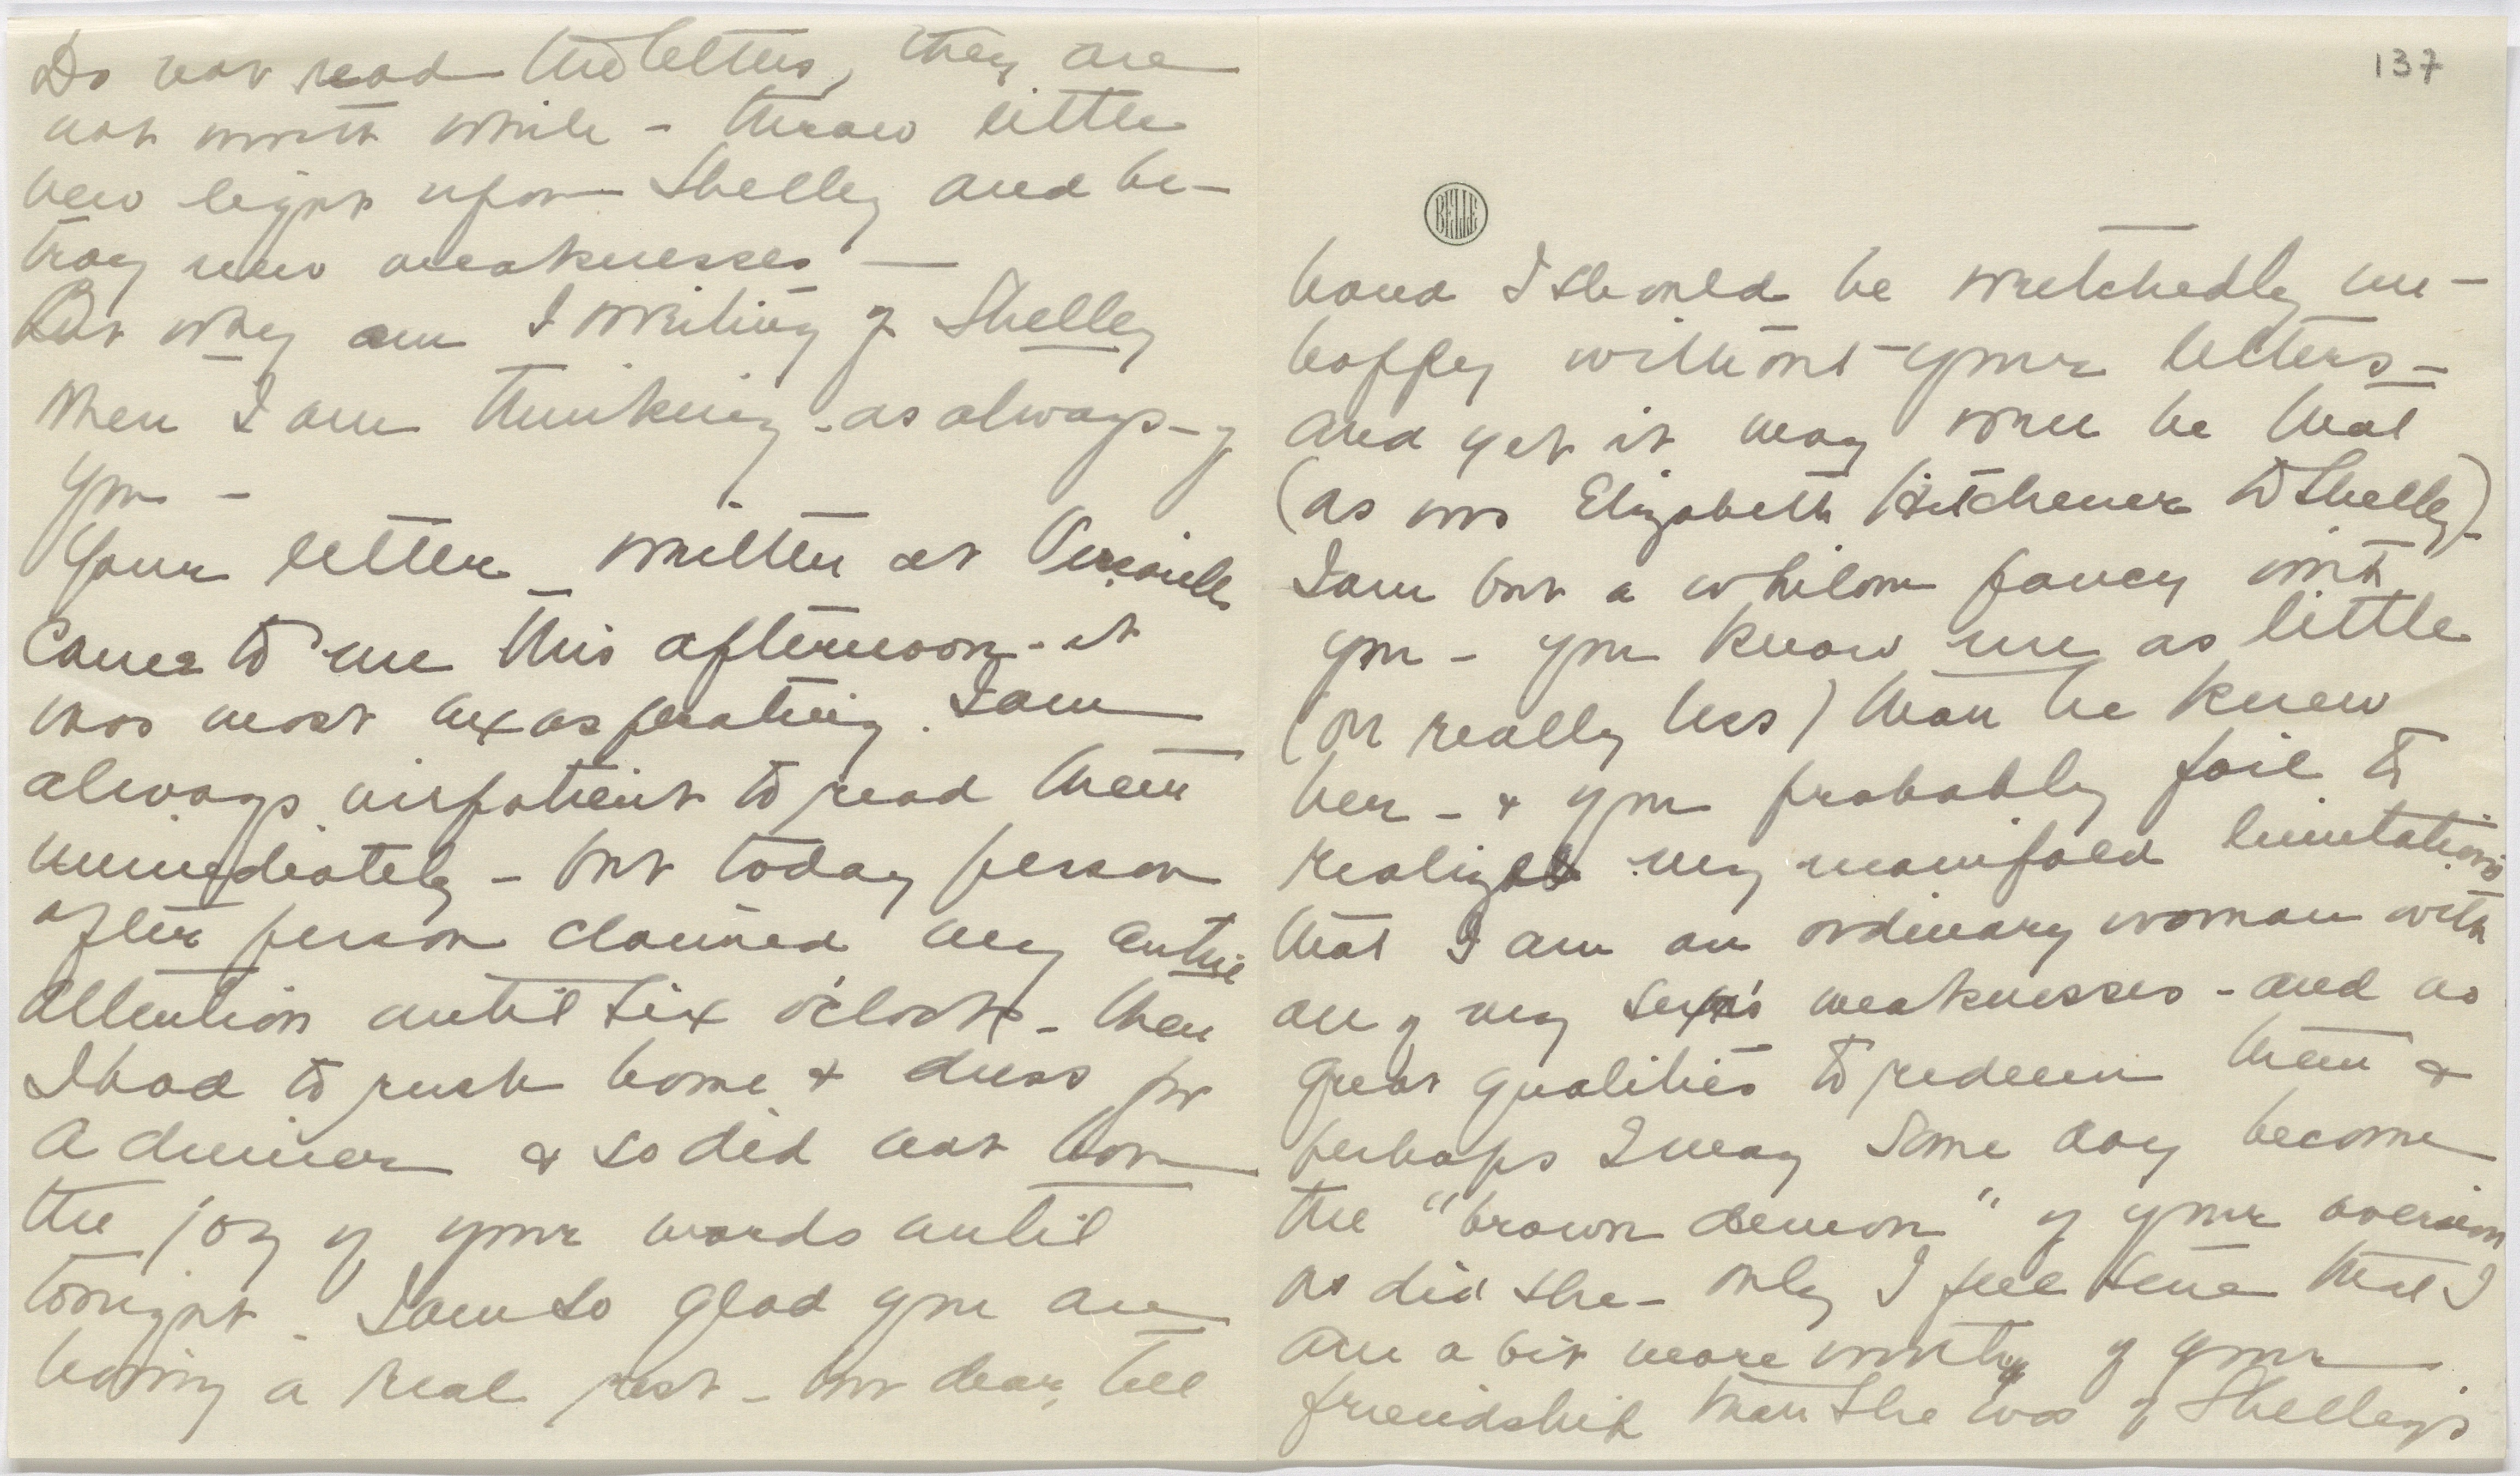 Do not read the letters, they are
not worth while - throw little
new light upon Shelley and be-
tray new weaknesses —
But why am I writing of Shelley
when I am thinking - as always - of
you -
Your letter written at
came to me this afternoon - it
was most exasperating. I am
always impatient to read them
immediately - but today person
after person claimed my entire
attention until six o'clock - then
I had to rush home & dress for
a dinner & so did not have
the joy of your words until
tonight. I am so glad you are
having a real rest - but dear, tell
137
BELLE
hand I should be wretchedly un-
happy without your letters -
and yet it may well be that
(as was Elizabeth Hitchener to Shelley)
I am but a whilom fancy with
you - you know me as little
(or really less) than he knew
her - & you probably fail to
realize my manifold limitations
that I am an ordinary woman with
all of my sex's weaknesses - and no
great qualities to redeem them &
perhaps I may some day become
the "brown demon" of your aversion
as did she - only I feel sure that I
am a bit more worthy of your
friendship than she was of Shelley's